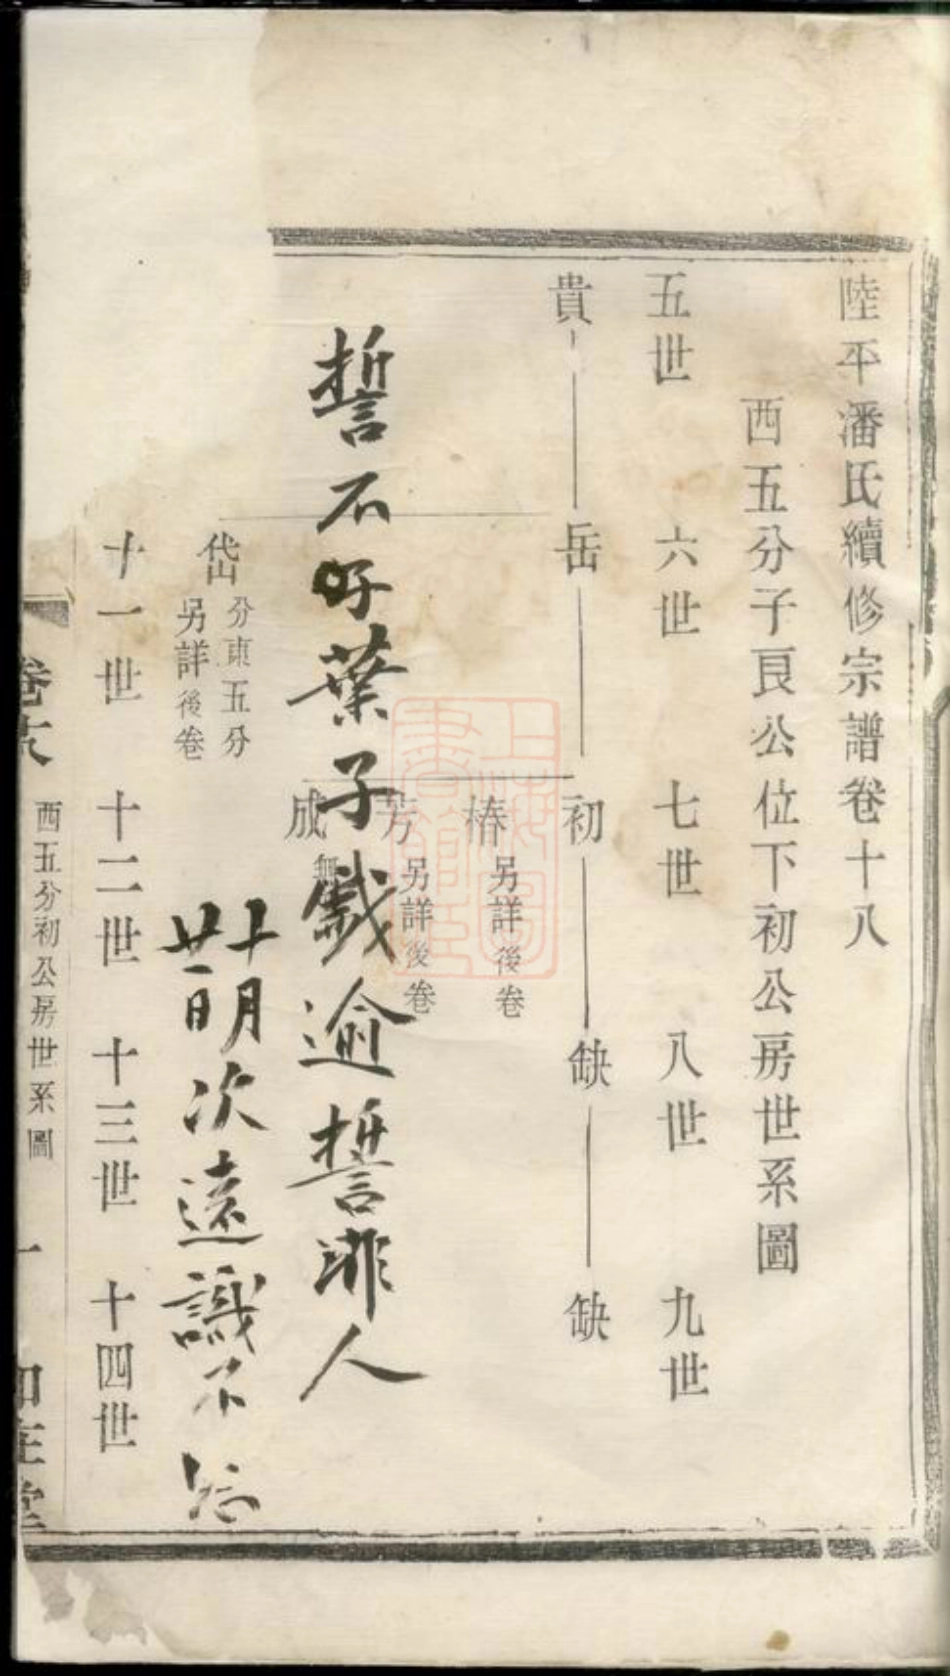 陸平潘氏續修宗譜卷十八
西五分子艮公位下初公房世系圖
五世 六世 七世 八世 九世
貴 岳 初 缺 缺
椿 另詳後卷
芳 另詳後卷
成
誓不好葉子戲逾誓非人
岱 分東五分 另詳後卷
廿十一明次遠識不忘
十一世 十二世 十三世 十四世
卷十八 西五分初公房世系圖 一
上海圖書館藏